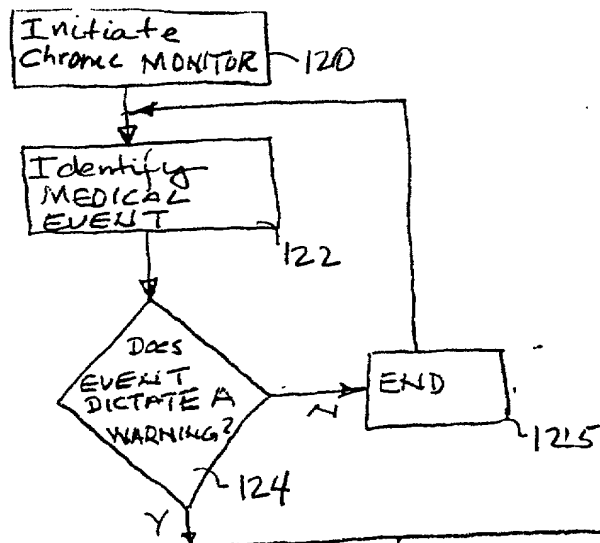 Initiate
Chronic MONITOR
120
Identify
MEDICAL
EVENT
122
Does
EVENT
DICTATE A
WARNING?
124
N
END
125
Y